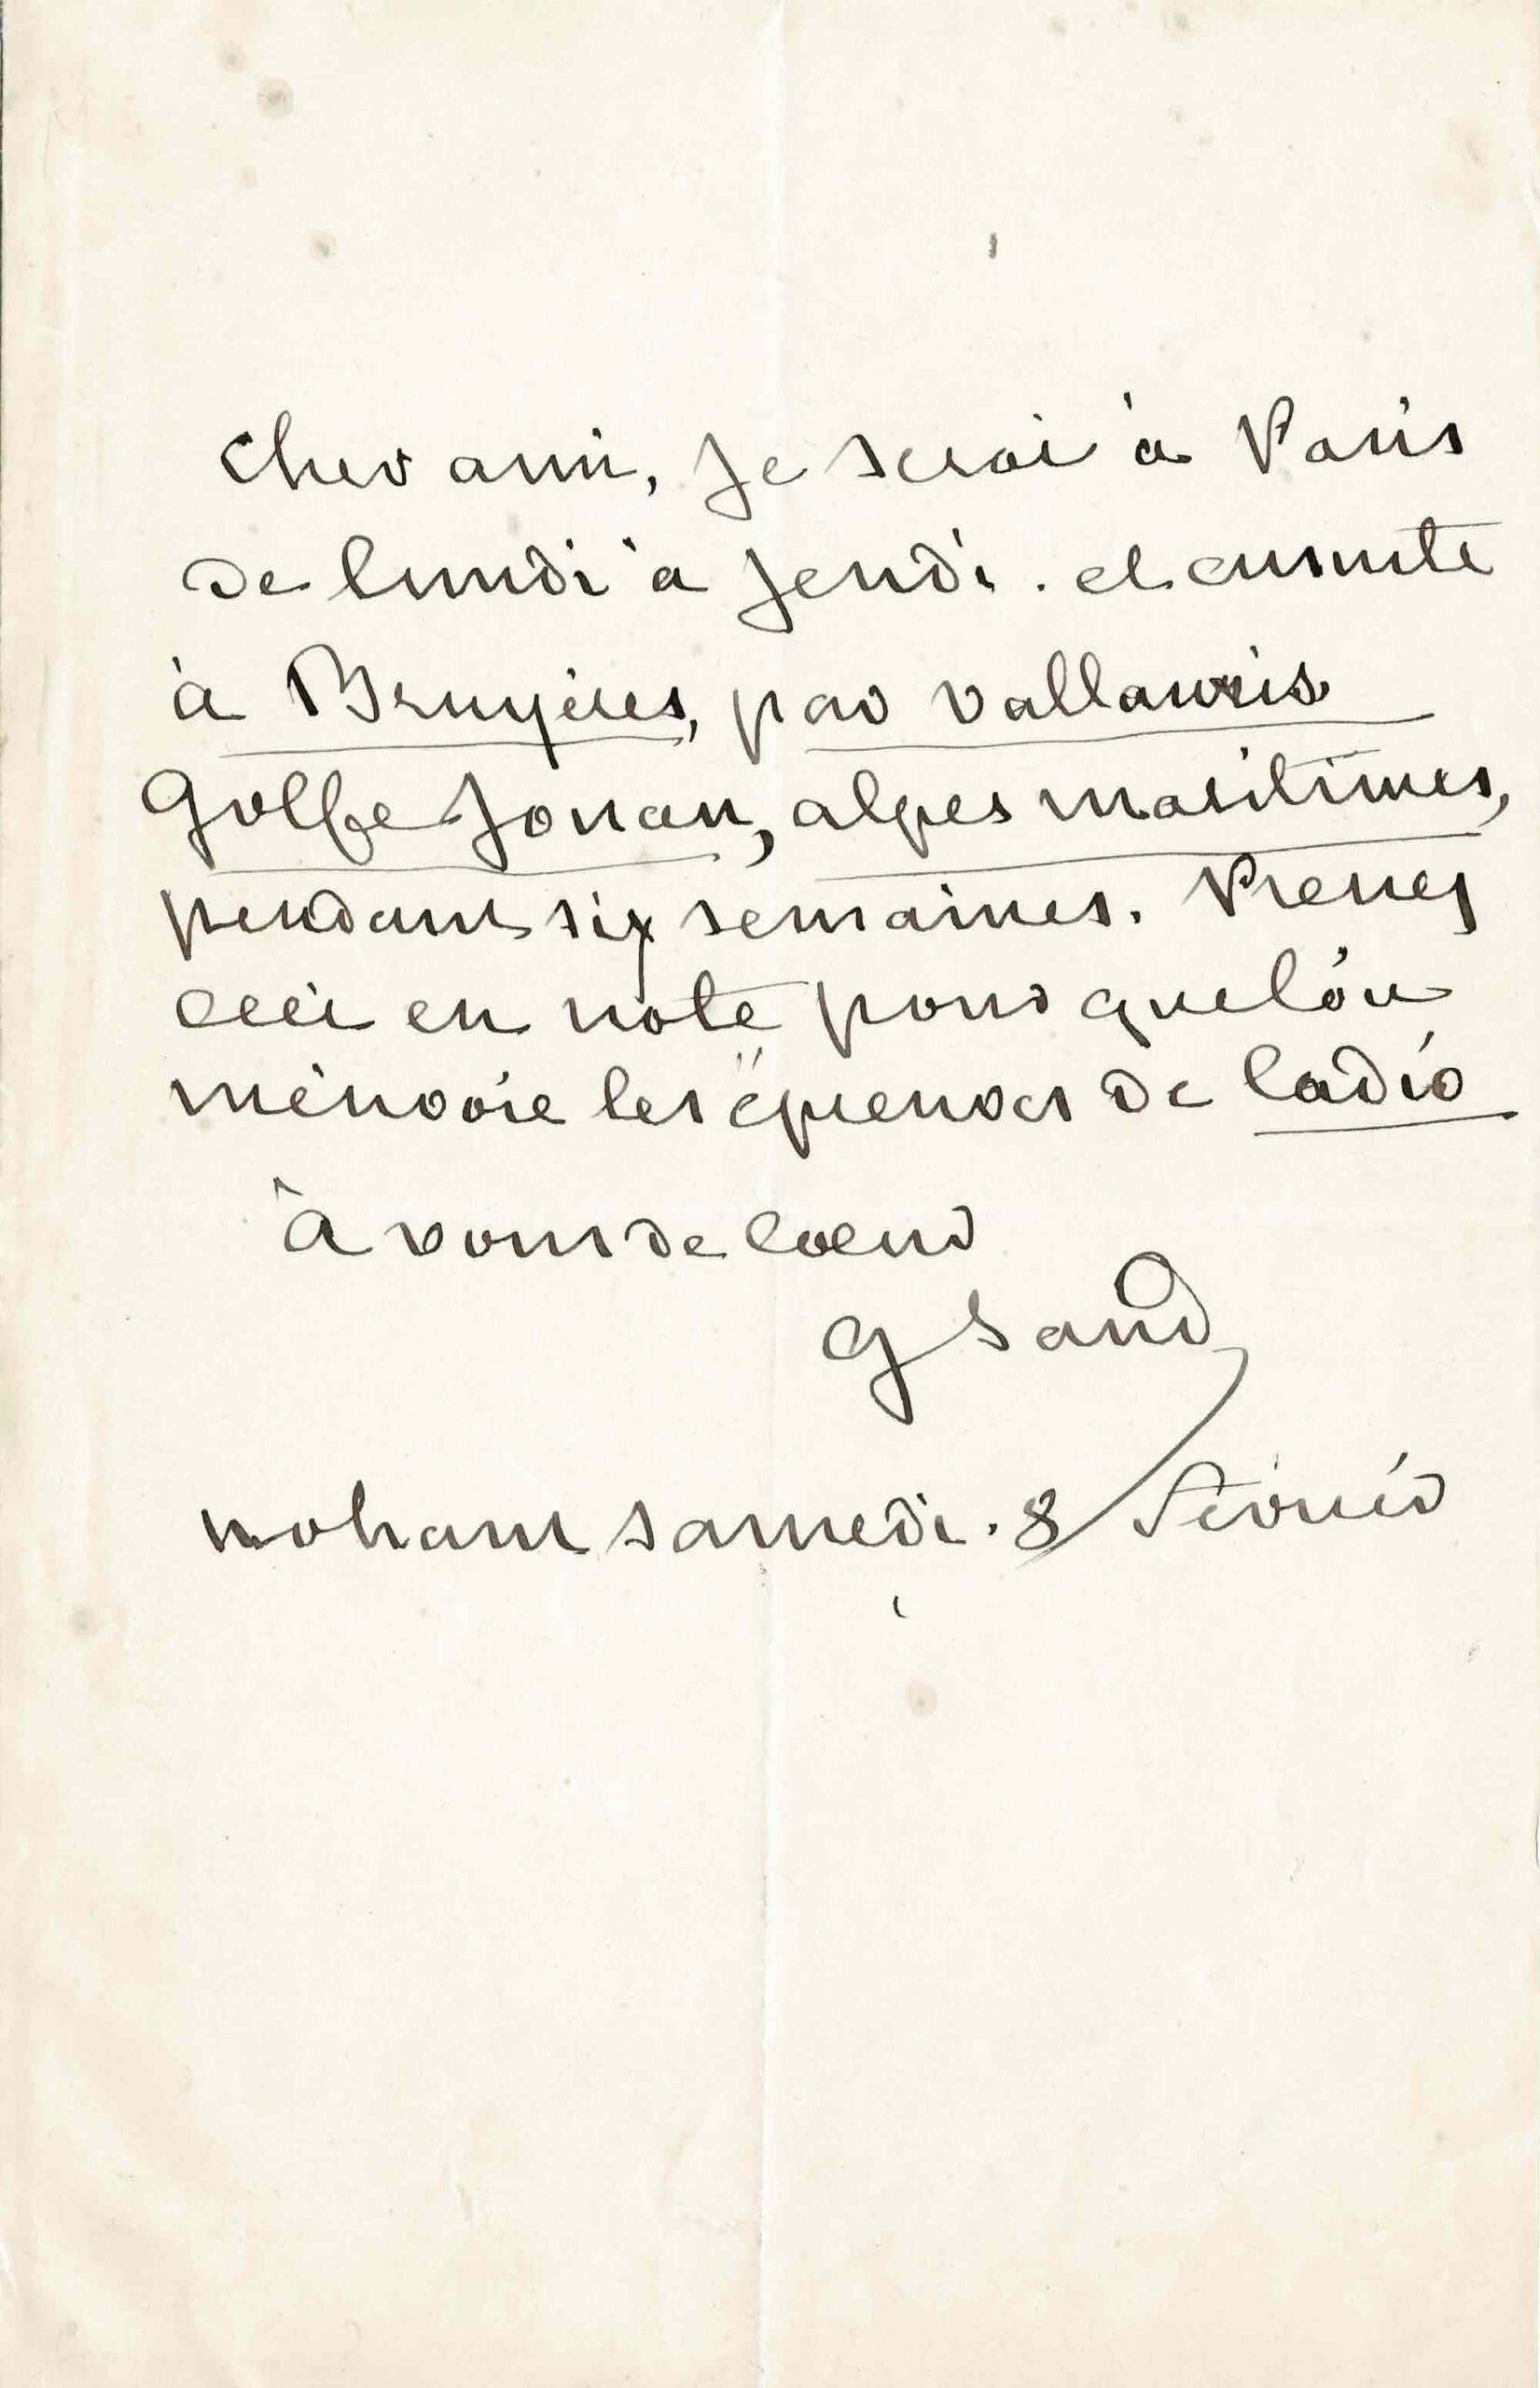 Cher ami, je serai à Paris
de lundi à jeudi. et ensuite
à Bruyères, par vallauris
Golfe Jouan, alpes maritimes,
pendant six semaines. Prenez
ceci en note pour que l'on
m'envoie les épreuves de Cadio
à vous de coeur
G Sand
nohant samedi. 8 février